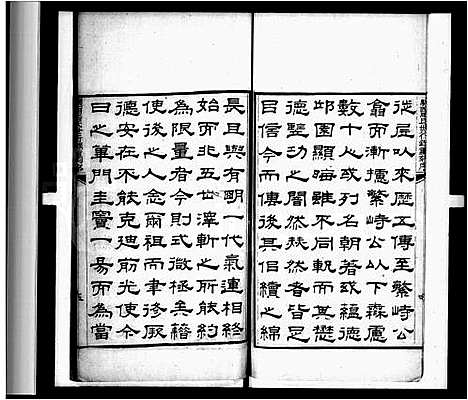 從居以來歷五傳至繁峙公
禽而漸振繁峙公以下森
數十人或列名朝著或蘊德
邱園顯晦雖不同軌而其懋
德堅功之聞然於者皆足
自信今而傳後其但續之綿
長且與有明一代氣運相終
始而非五世澤斬之所能約
為限量者今則式微極矣藉
使後之人念爾祖而聿後厥
德安在不能克迪前光使今
日之篳門圭竇一易而為當